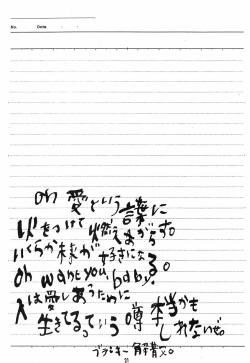 No.　　Date　・　・
oh 愛という言葉に
火をつけて燃えあがらす。
いくらか未来が好きになる。
oh want you, baby.
人は愛しあうために
生きてるっていう噂
本当かも
しれないぜ。
ブランキー
21